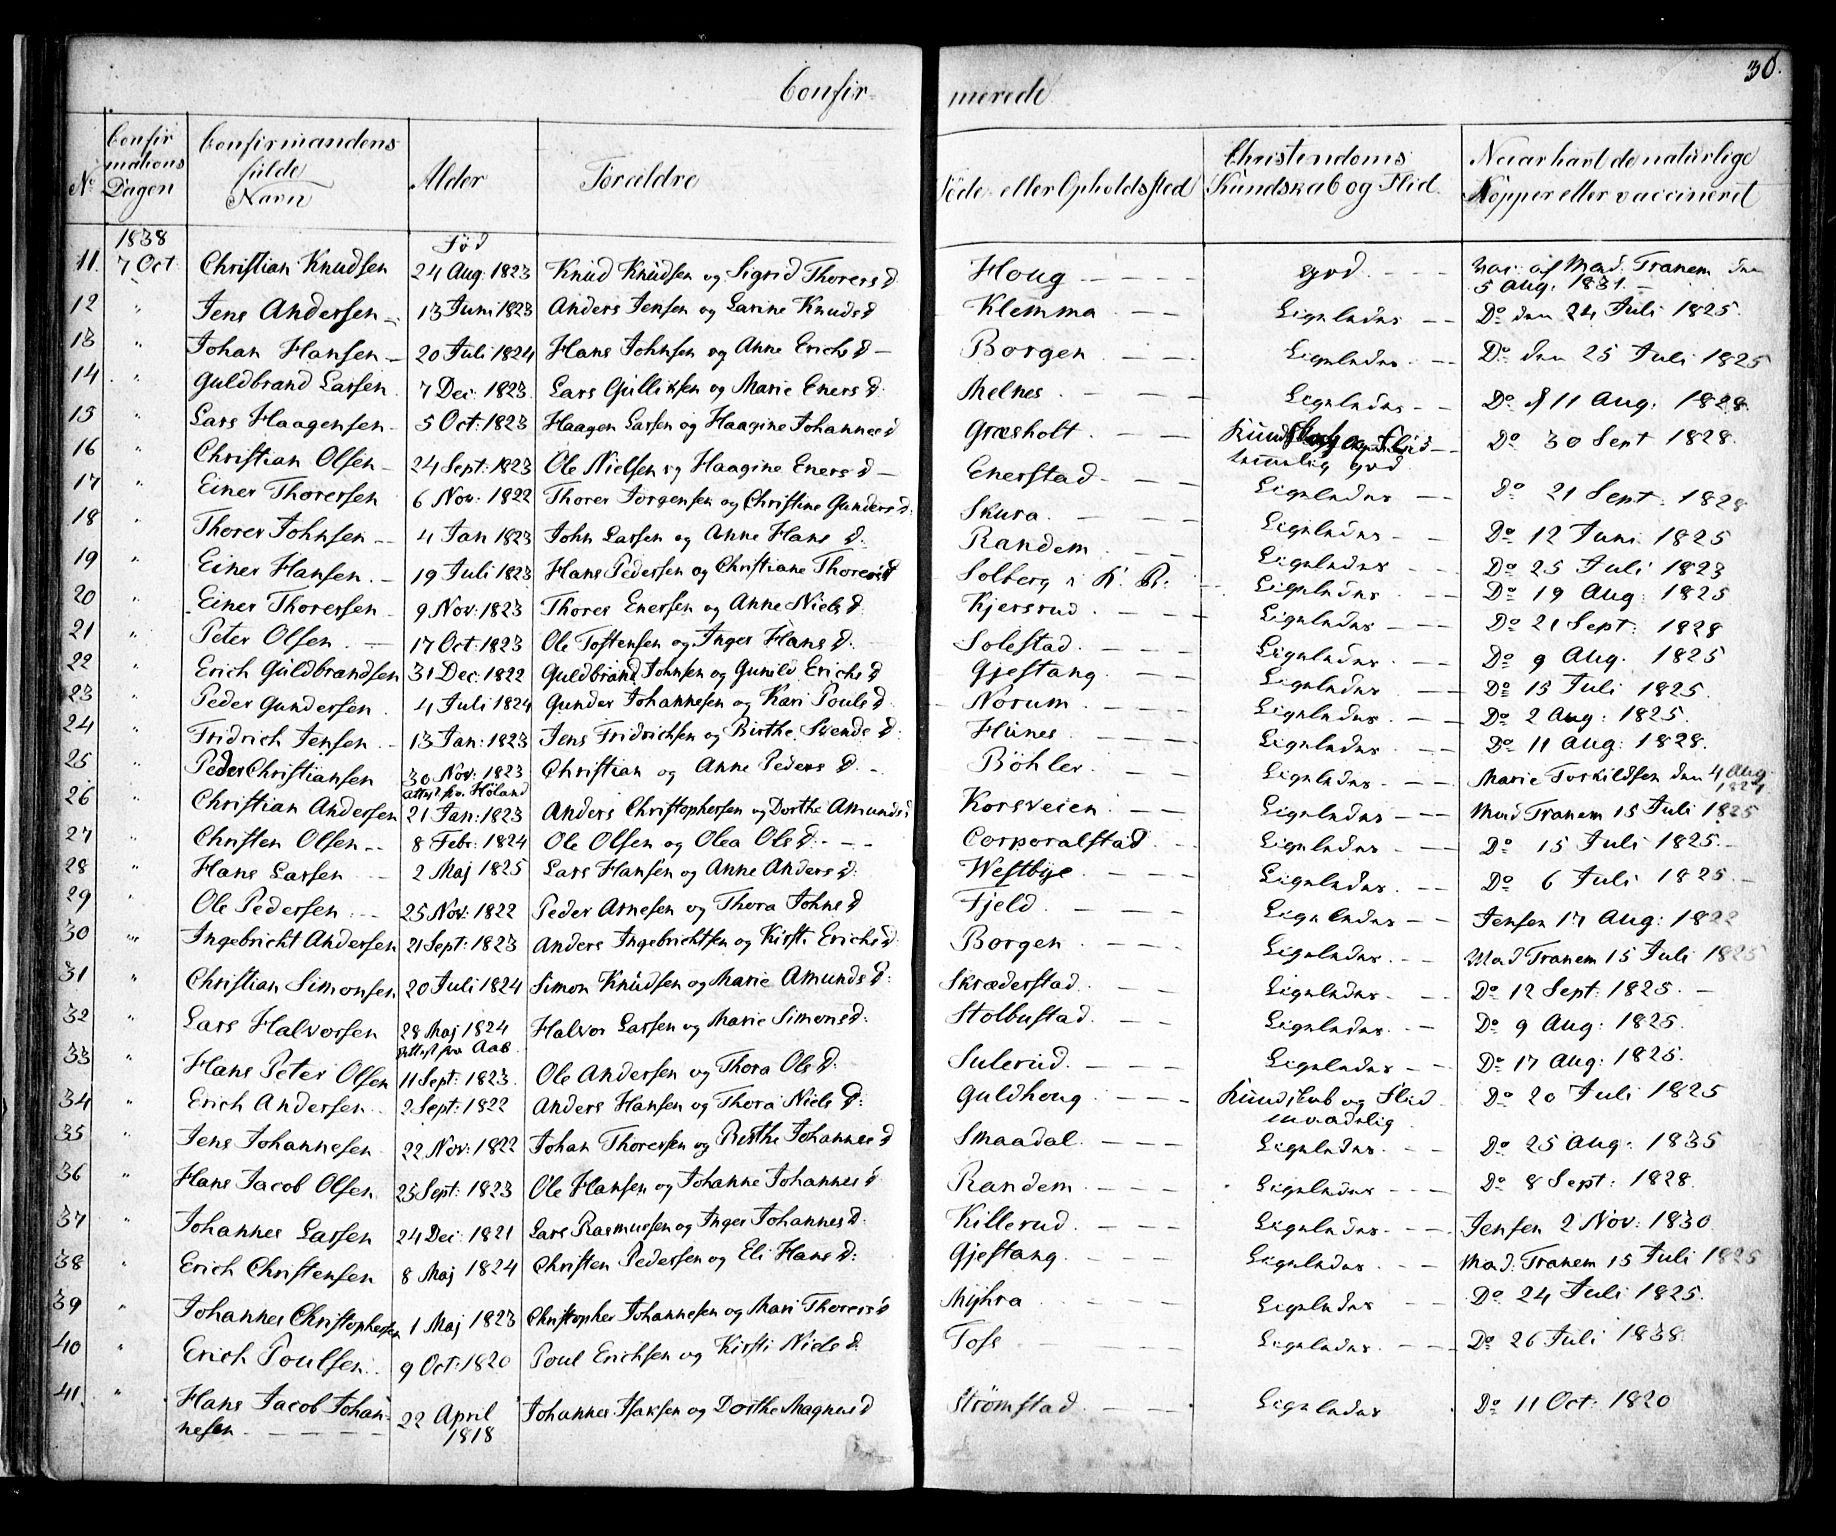 30.
Confir-
merede
No
Confir
mations
Dagen
Confirmandens
fulde
Navn
Alder
Forældre
Föde- eller Opholdssted
Christendoms
Kundskab og Flid
Naar havt de naturlige
Kopper eller vaccineret
1838
Föd
11. 7 Oct: Christian Knudsen 24 Aug: 1823 Knud Knudsen og Sigrid Thorers d. Houg god. vac: af Mad. Tranem den
5 Aug: 1831.
12 " Jens Andersen 13 Juni 1823 Anders Jensen og Larine Knuds d Klemma Ligeledes Do den 24 Juli 1825.
13 " Johan Hansen 20 Juli 1824 Hans Johnsen og Anne Erichs d Borgen Ligeledes Do den 25 Juli 1825
14 " Guldbrand Larsen 7 Dec: 1823. Lars Gulliksen og Marie Eners d: Melnes Ligeledes Do d 11 Aug: 1828.
15 " Lars Haagensen 5 Oct: 1823 Haagen Larsen og Haagine Johannes d Græsholt Kundskab og Flid
temmelig god Do 30 Sept 1828.
16 " Christian Olsen 24 Sept: 1823 Ole Nielsen og Haagine Eners d Enerstad Ligeledes Do 21 Sept: 1828
17 " Einer Thorersen 6 Nov: 1822 Thorer Jörgensen og Christine Gunders d. Skura Ligeledes Do 12 Juni 1825
18 " Thorer Johnsen 4 Jan 1823 John Larsen og Anne Hans d: Randem Ligeledes Do 25 Juli 1823
19 " Einer Hansen 19 Juli 1823 Hans Pedersen og Christiane Thorers d Solberg i K. R: Ligeledes Do 19 Aug: 1825
20 " Einer Thorersen 9 Nov: 1823 Thorer Enersen og Anne Niels d: Kjersrud Ligeledes Do 21 Sept: 1828
21 " Peter Olsen 17 Oct: 1823 Ole Tostensen og Inger Hans d: Solestad Ligeledes Do 9 Aug: 1825
22 " Erich Guldbrandsen 31 Dec: 1822 Guldbrand Johnsen og Gunild Erichs d Gjestang Ligeledes Do 15 Juli 1825.
23 " Peder Gundersen 4 Juli 1824 Gunder Johannesen og Kari Pouls d Norum Ligeledes Do 2 Aug: 1825.
24 " Fridrich Jensen 13 Jan: 1823 Jens Fridrichsen og Birthe Svends d: Hünes Ligeledes Do 11 Aug: 1828.
25 " Peder Christiansen 30 Nov: 1823 Christian og Anne Peders d. Böhler Ligeledes Marie Torkildsen den 4 Aug
1824
attest fra Höland
26 " Christian Andersen 21 Jan: 1823 Anders Christophersen og Dorthe Amunds d Korsveien Ligeledes Mad Tranem 15 Juli 1825
27 " Christen Olsen 8 Febr: 1824 Ole Olsen og Olea Ols d: Corporalstad Ligeledes Do 15 Juli 1825.
28 " Hans Larsen 2 Maj 1825 Lars Hansen og Anne Anders d: Westbye Ligeledes Do 6 Juli 1825
29 " Ole Pedersen 25 Nov: 1822 Peder Arnesen og Thora Johns d Fjeld Ligeledes Jensen 17 Aug: 1822
30 " Ingebricht Andersen 21 Sept: 1823 Anders Ingebrichtsen og Kirsti Erichs d: Borgen Ligeledes Mad Tranem 15 Juli 1825
31 " Christian Simonsen 20 Juli 1824 Simon Knudsen og Marie Amunds d: Skræderstad Ligeledes Do 12 Sept: 1825.
32 " Lars Halvorsen 28 Maj 1824 Halvor Larsen og Marie Simons d: Stolbustad Ligeledes Do 9 Aug: 1825.
attest fra Aas
33 " Hans Peter Olsen 11 Sept: 1823. Ole Andersen og Thora Ols d: Sulerud Ligeledes Do 17 Aug: 1825.
34 " Erich Andersen 2 Sept: 1822 Anders Hansen og Thora Niels d: Guldhoug Kundskab og Flid
maadelig Do 20 Juli 1825
35 " Jens Johannesen 22 Nov: 1822 Johan Thorersen og Birthe Johannes d Smaadal Ligeledes Do 25 Aug: 1835
36 " Hans Jacob Olsen 25 Sept: 1823 Ole Hansen og Johanne Johannes d Randem Ligeledes Do 8 Sept: 1828.
37 " Johannes Larsen 24 Dec: 1821 Lars Rasmussen og Inger Johannes d: Killerud Ligeledes Jensen 2 Nov: 1830
38 " Erich Christensen 8 Maj 1824 Christen Pedersen og Eli Hans d: Gjestang Ligeledes Mad: Tranem 15 Juli 1825
39 " Johannes Christophersen 1 Maj 1823 Christopher Johannesen og Mari Thorers d Myhra Ligeledes Do 24 Juli 1825.
40 " Erich Poulsen 9 Oct: 1820 Poul Erichsen og Kirsti Niels d: Foss Ligeledes Do 26 Juli 1838.
41 " Hans Jacob Johan-
nesen 22 April
1818 Johannes Isaksen og Dorthe Magnus d Strömstad Ligeledes Do 11 Oct: 1820